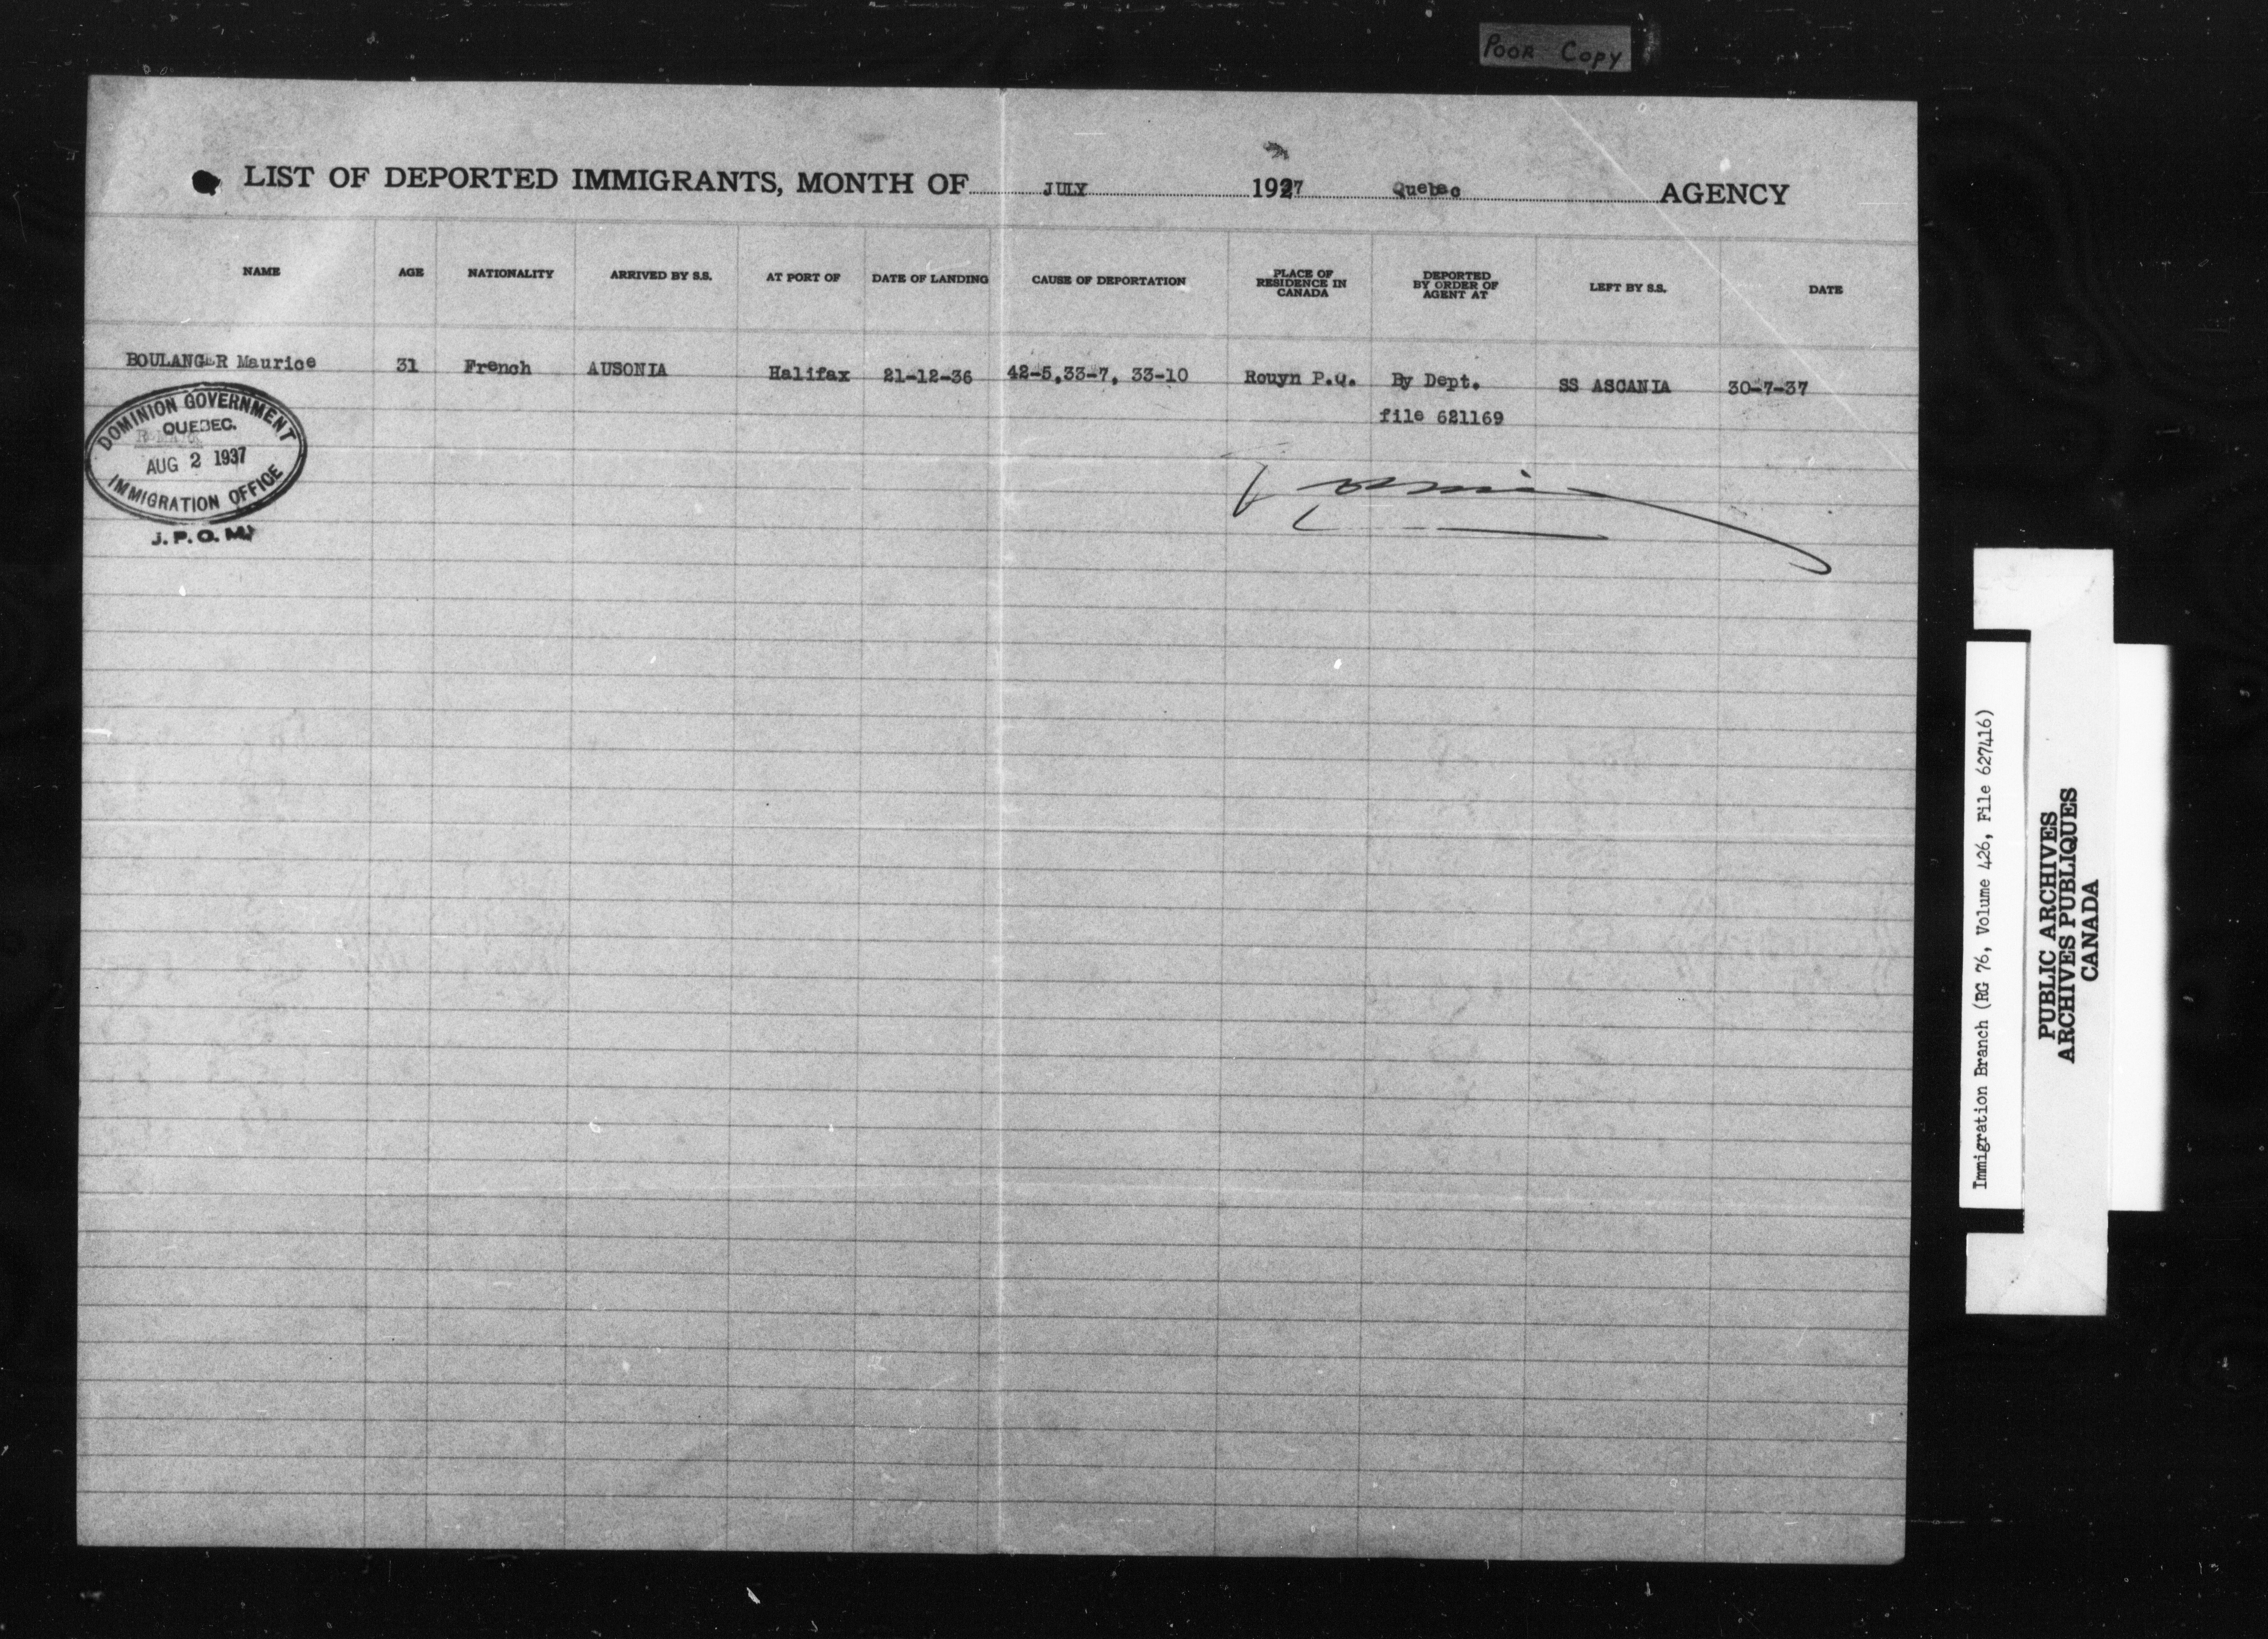 POOR COPY
LIST OF DEPORTED IMMIGRANTS, MONTH OF JULY 1937 Quebec AGENCY
NAME AGE NATIONALITY ARRIVED BY S.S. AT PORT OF DATE OF LANDING CAUSE OF DEPORTATION PLACE OF RESIDENCE IN CANADA DEPORTED BY ORDER OF AGENT AT LEFT BY S.S. DATE
BOULANGER Maurice 31 French AUSONIA Halifax 21-12-36 42-5,33-7, 33-10 Rouyn P.Q. By Dept. SS ASCANIA 30-7-37
file 621169
DOMINION GOVERNMENT
QUEBEC.
AUG 2 1937
IMMIGRATION OFFICE
J. P. O. M.
Immigration Branch (RG 76, Volume 426, File 627416)
PUBLIC ARCHIVES
ARCHIVES PUBLIQUES
CANADA